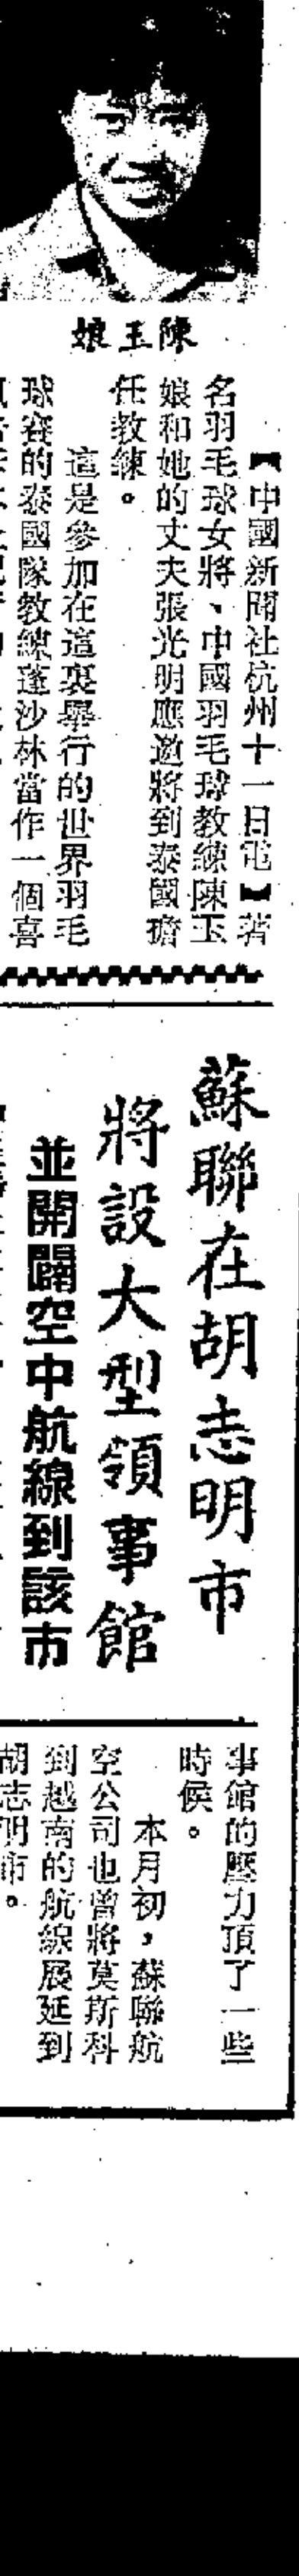 陳玉娘
【中國新聞社杭州十一日電】著
名羽毛球女將、中國羽毛球教練陳玉
娘和她的丈夫張光明應邀將到泰國擔
任教練。
這是參加在這裏舉行的世界羽毛
球賽的泰國隊教練蓬沙林當作一個喜
蘇聯在胡志明市
將設大型領事館
並開闢空中航線到該市
事館的壓力頂了一些
時候。
本月初，蘇聯航
空公司也曾將莫斯科
到越南的航線展延到
胡志明市。